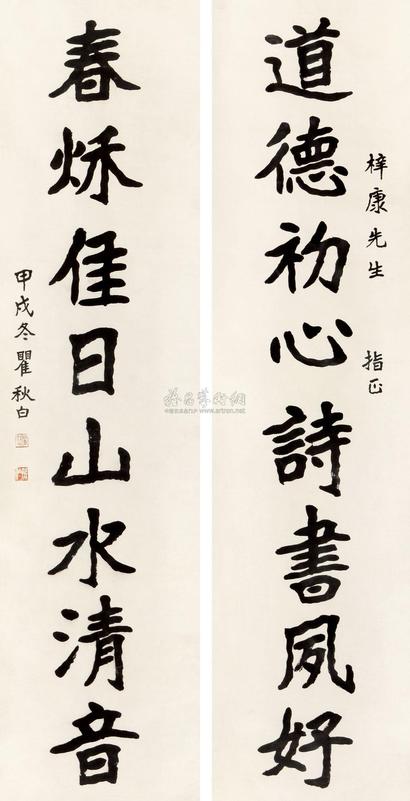 梓康先生 指正
道德初心詩書夙好
春烁佳日山水清音
甲戌冬瞿秋白
www.artron.net